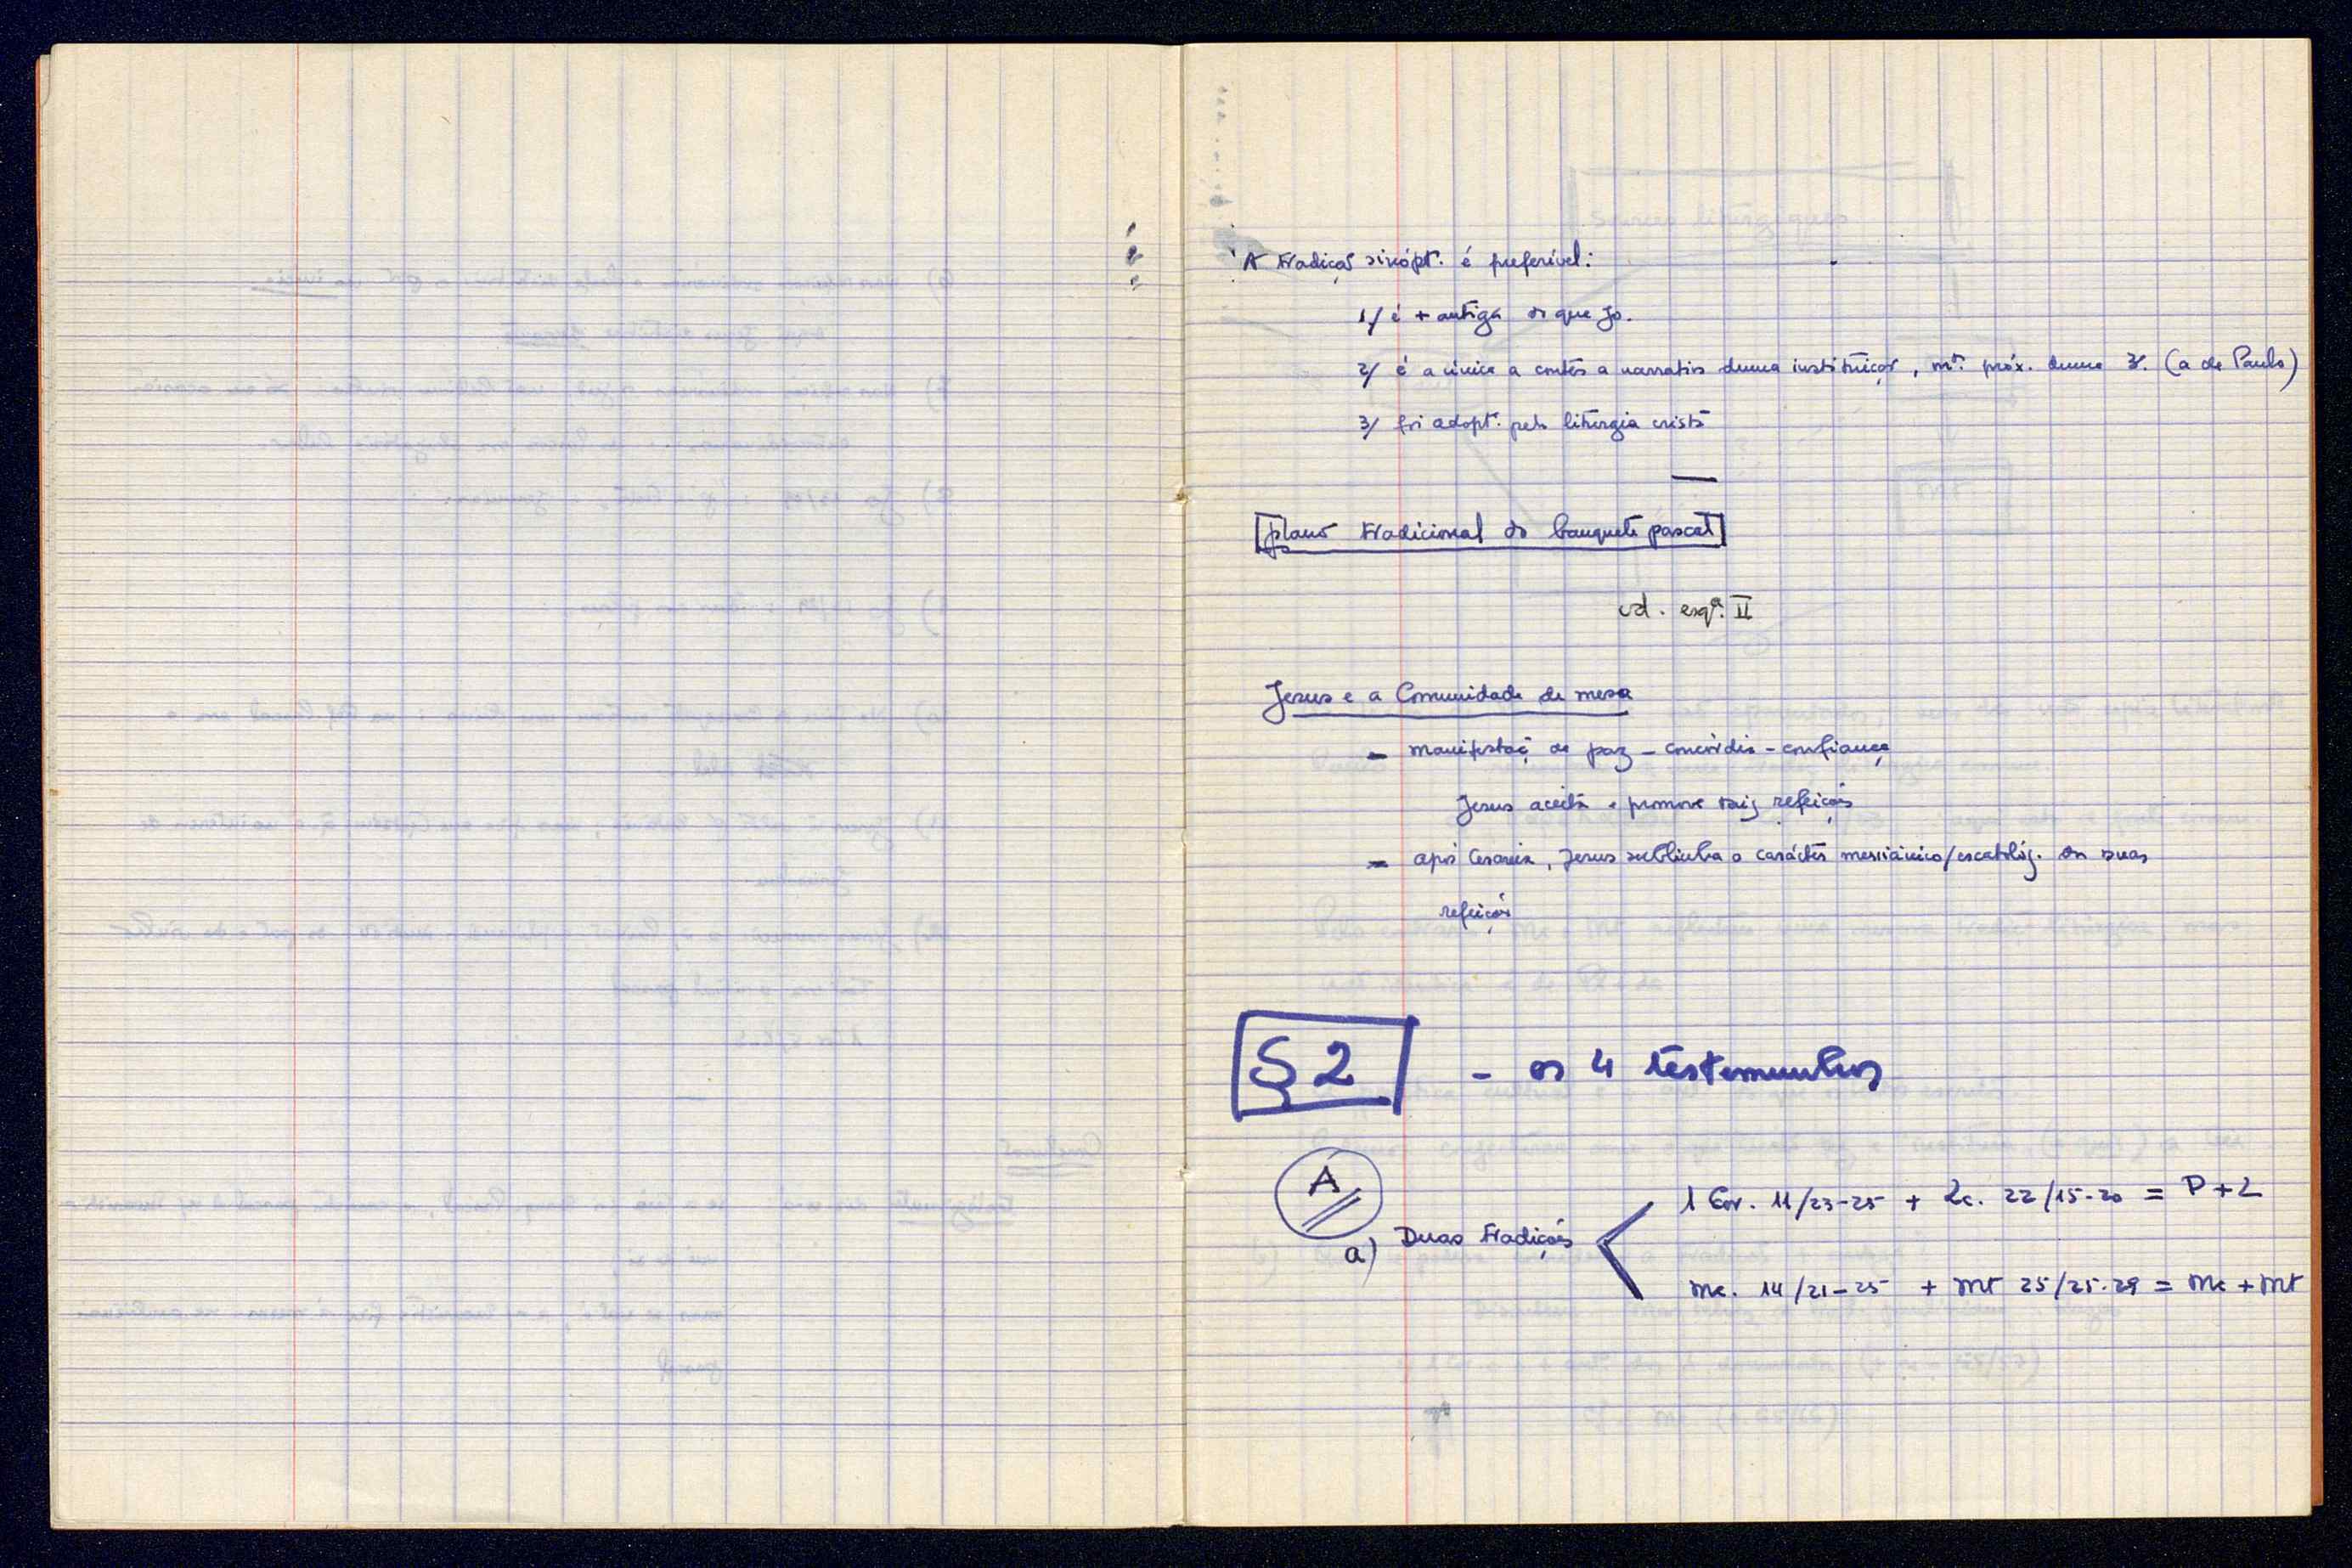 A tradiçaõ sinópt. é preferível:
1/ é + antiga do que Jo.
2/ é a única a contês a narrativa duma instituiçaõ, mtº próx. duma 3ª. (a de Paulo)
3/ foi adoptª. pela liturgia cristã
plano tradicional do banquete pascal
vd. esqª. II
Jesus e a Comunidade de mesa
- manifestaç de paz - concórdia - confiança
Jesus aceita e promove tais refeições
- após Cesareia, Jesus sublinha o carácter messiânico/escatológ. das suas
refeições
§ 2 - os 4 testemunhos
A
a) Duas tradições
1 Cor. 11/23-25 + Lc. 22/15-20 = P + L
Mc. 14/21-25 + Mt 25/25-29 = Mc + Mt